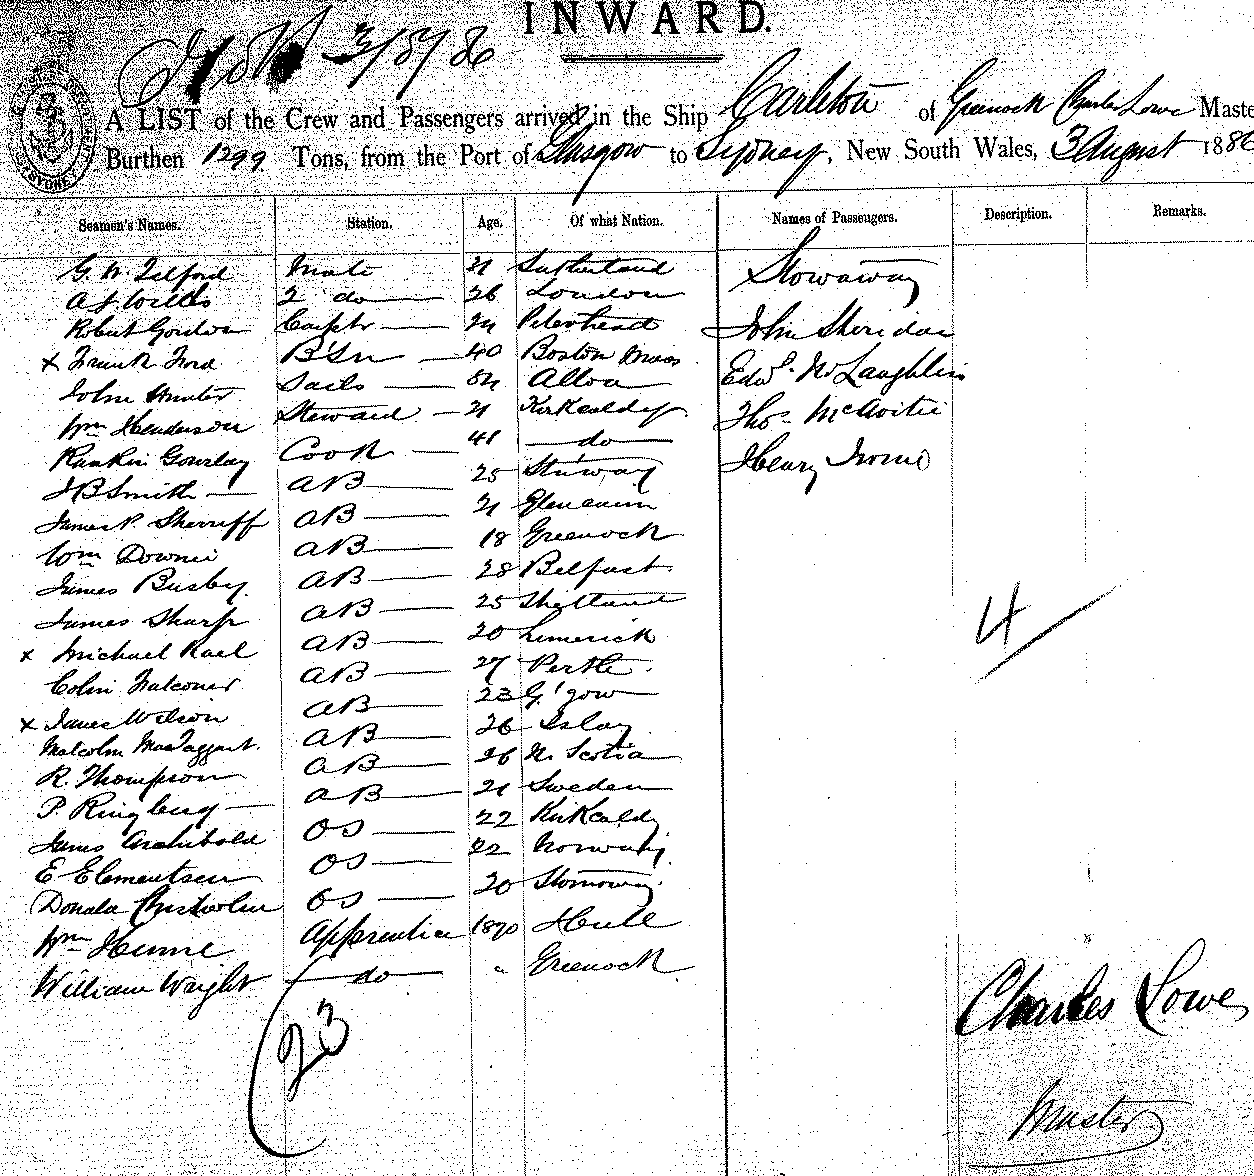 INWARD.
3/8/86
A LIST of the Crew and Passengers arrived in the Ship Carleton of Greenock Charles Lowe Maste
Burthen 1299 Tons, from the Port of Glasgow to Sydney, New South Wales, 3 August 1886
Seamen's Names. Station. Age. Of what Nation. Names of Passengers. Description. Remarks.
G. W Telford Mate 21 Sutherland Stowaway
A J Wills 2 do 26 London
Robert Gordon Carptr 24 Peterhead John Sheridan
x Frank Ford B'Sn 40 Boston Mass Edwd. McLaughlin
John Hunter Sails 54 Alloa
Wm Henderson Steward 21 Kirkcaldy Thos McAvitie
Rankin Gourlay Cook 41 do
J B Smith AB 25 Henry
James P. Sherriff AB 21
Wm Downie AB 18 Greenock
James Busby. AB 28 Belfast
James Sharp AB 25 Shetland
x Michael AB 20 Limerick
Colin Falconer AB 27 Perth.
x James Wilson AB 23 G'gow
Malcolm MacTaggart. AB 26 Islay
R. Thompson AB 26 N. Scotia
P. Ringberg AB 21 Sweden
James Archibald OS 22 Kirkcaldy
E Elementsen OS 22 Norway
Donald Chisholm OS 20 Stornoway
Wm Apprentice 18/20 Hull
William Wright do " Greenock
4
23
Charles Lowe
Master